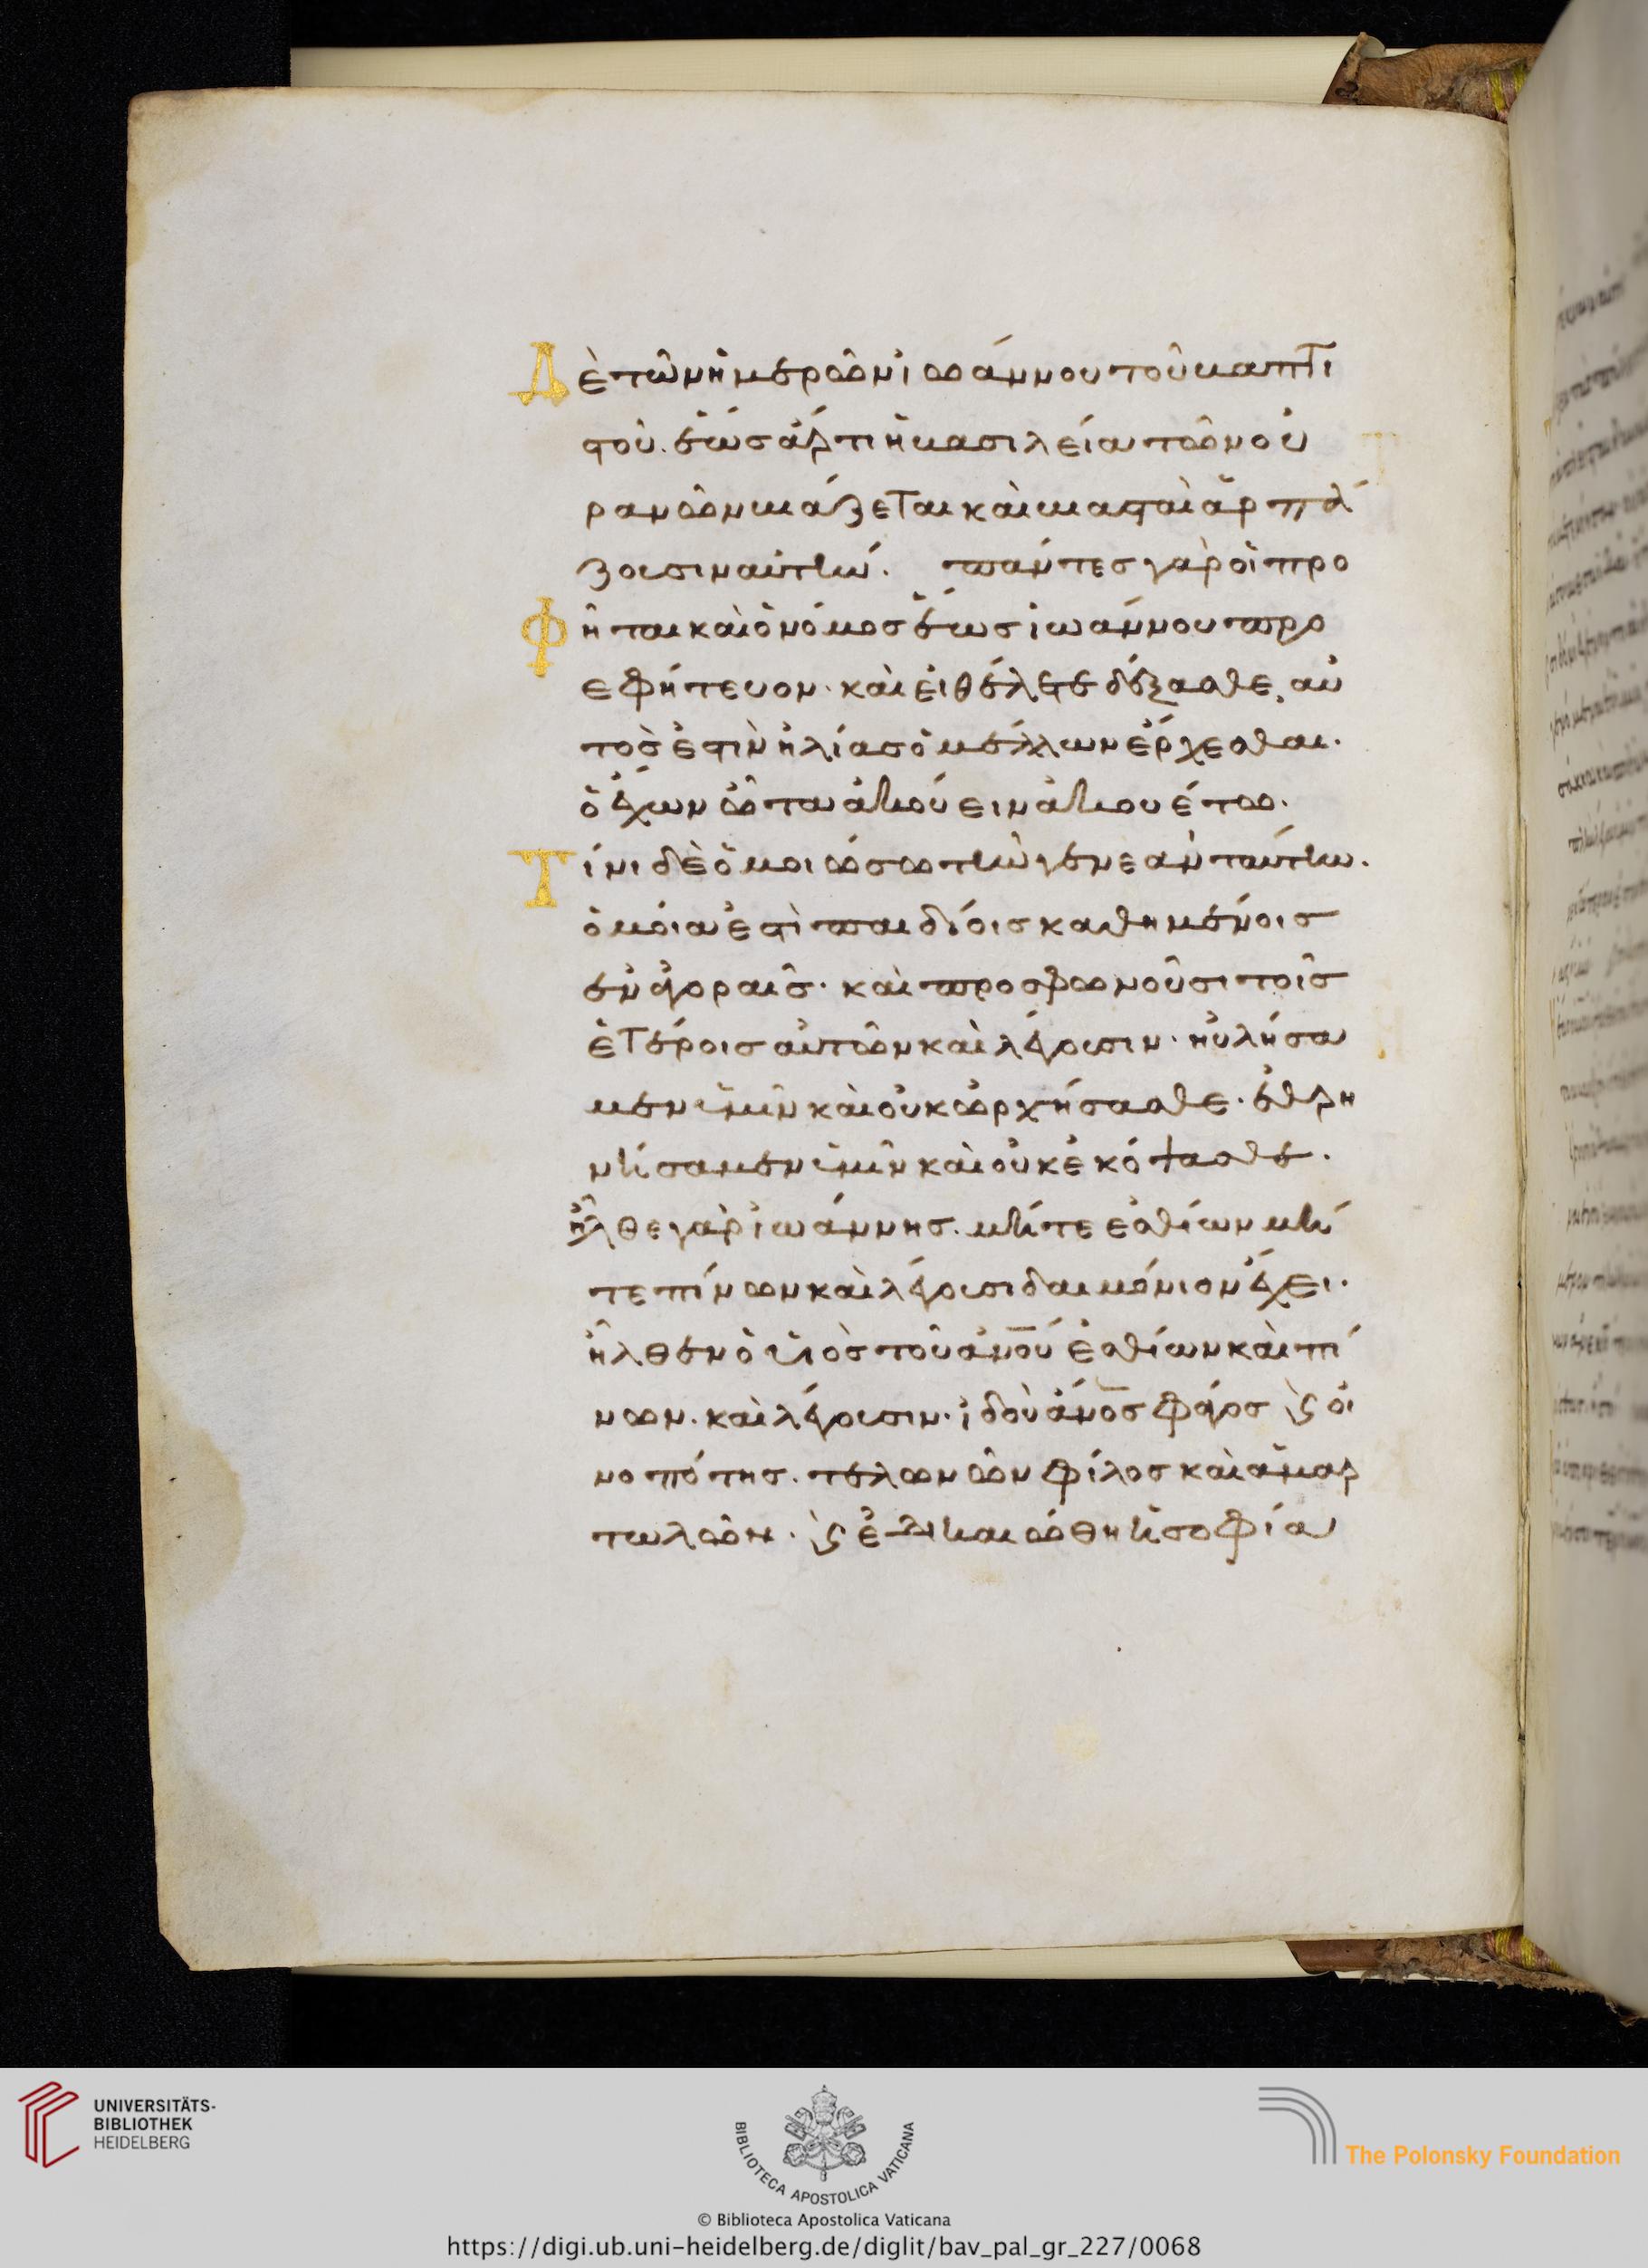 Δὲ τῶν ἡμερῶν ἰωάννου τοῦ βαπτι
στοῦ. ἕως ἄρτι ἡ βασιλεία τῶν οὐ
ρανῶν βιάζεται καὶ βιασταὶ ἁρπά
ζουσιν αὐτήν. πάντες γὰρ οἱ προ
Φῆται καὶ ὁ νόμος ἕως ἰωάννου προ
εφήτευον· καὶ εἰ θέλετε δέξασθε, αὐ
τός ἐστιν ἠλίας ὁ μέλλων ἔρχεσθαι·
ὁ ἔχων ὦτα ἀκούειν ἀκουέτω·
Τίνι δὲ ὁμοιώσω τὴν γενεὰν ταύτην.
ὁμοία ἐστὶ παιδίοις καθημένοις
ἐν ἀγοραῖς· καὶ προσφωνοῦσι τοῖς
ἑτέροις αὐτῶν καὶ λέγουσιν· ηὐλήσα
μεν ὑμῖν καὶ οὐκ ὠρχήσασθε· ἐθρη
νήσαμεν ὑμῖν καὶ οὐκ ἐκόψασθε·
ἦλθε γὰρ ἰωάννης. μήτε εσθίων μή
τε πίνων καὶ λέγουσι δαιμόνιον ἔχει·
ἦλθεν ὁ υἱὸς τοῦ ἀνου ἐσθίων καὶ πί
νων. καὶ λέγουσιν· ἰδοὺ ἄνος φάγος ϗ οἰ
νοπότης. τελωνῶν φίλος καὶ ἁμαρ
τωλῶν· ϗ ἐδικαιώθη ἡ σοφία
UNIVERSITÄTS-
BIBLIOTHEK
HEIDELBERG
BIBLIOTECA APOSTOLICA VATICANA
The Polonsky Foundation
© Biblioteca Apostolica Vaticana
https://digi.ub.uni-heidelberg.de/diglit/bav_pal_gr_227/0068